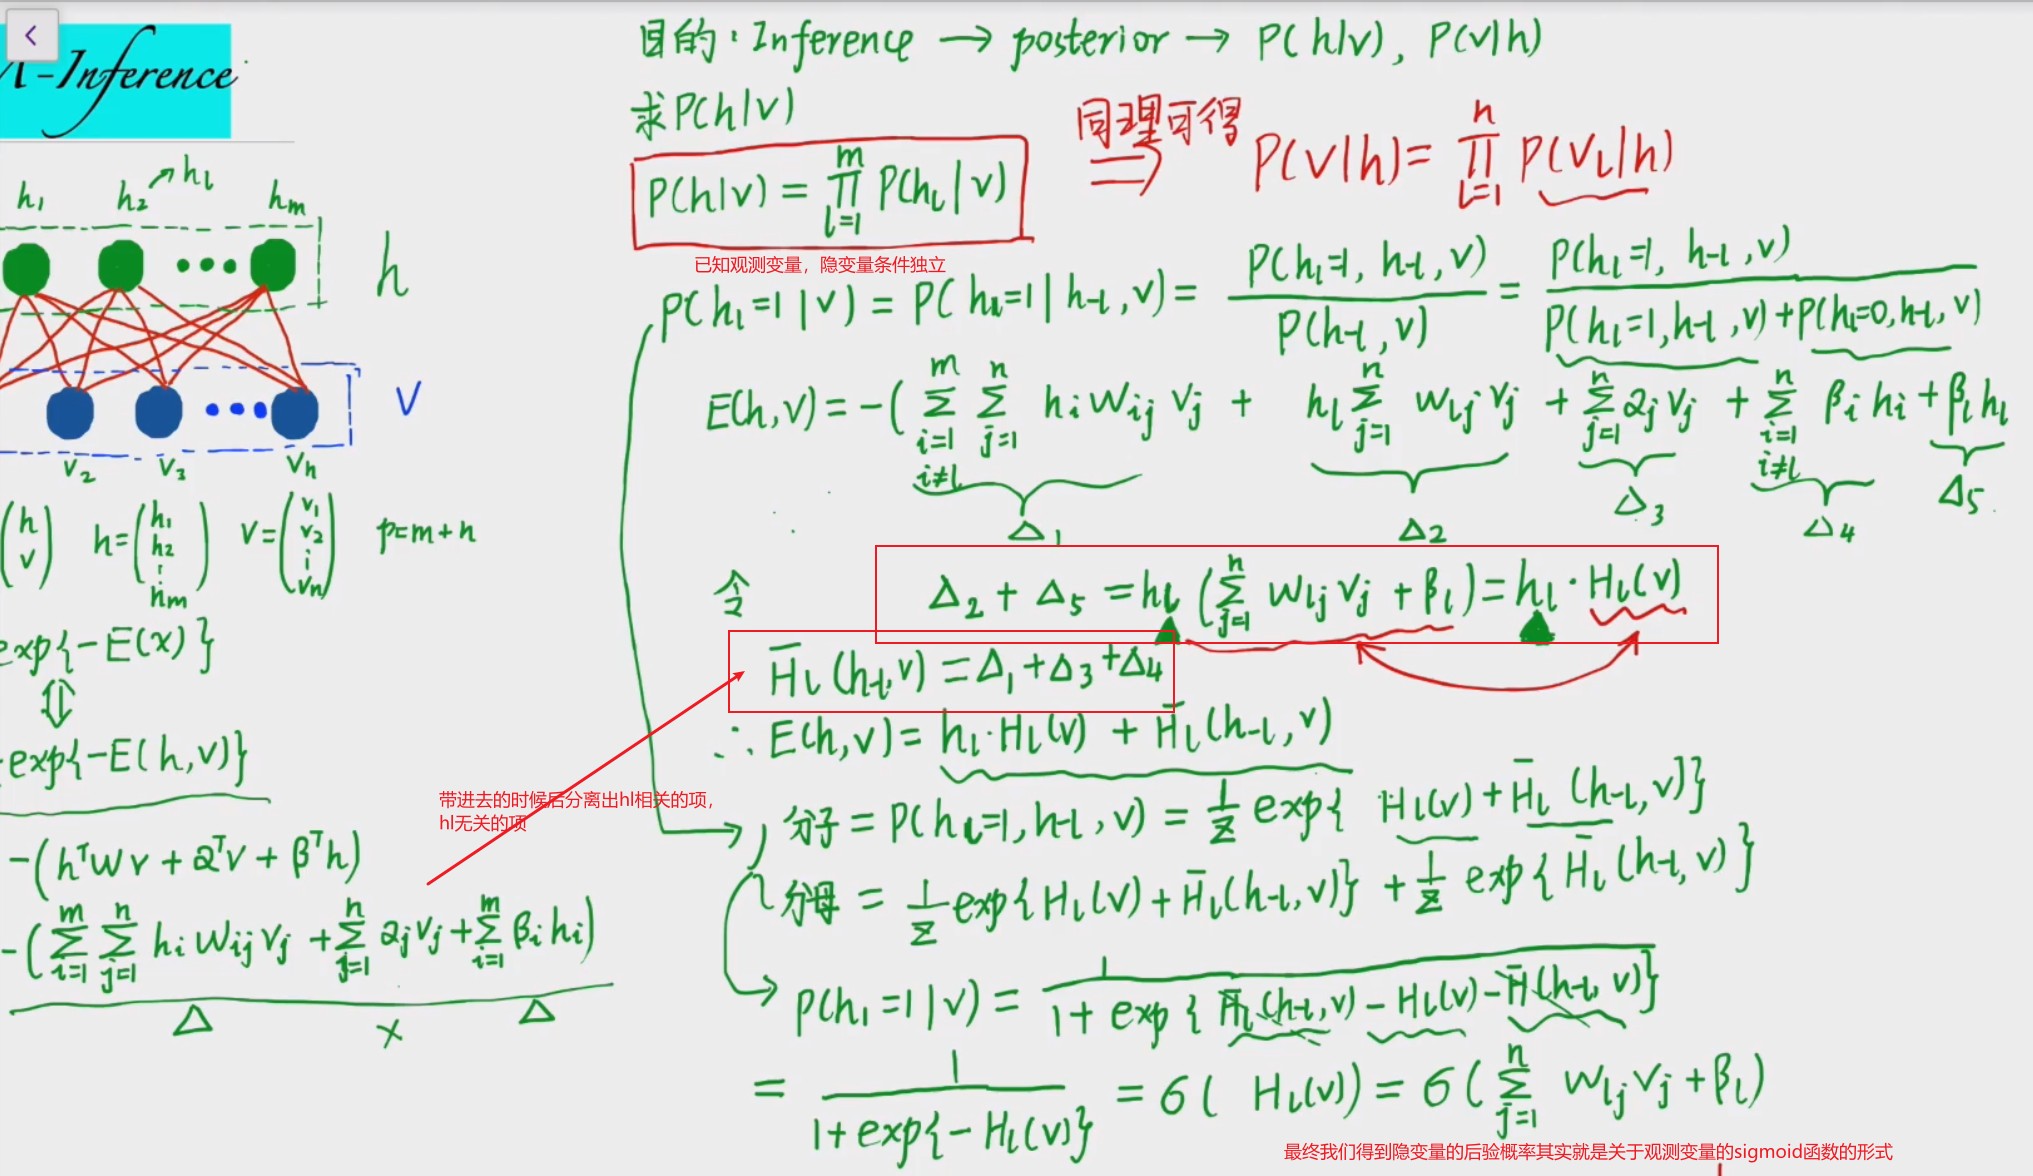 -Inference
h₁ h₂ → h_l h_m
h
v
v₂ v₃ v_n
(h v) h = (h₁ h₂ ⋮ h_m) v = (v₁ v₂ ⋮ v_n) p=m+n
exp{-E(x)}
⇕
exp{-E(h,v)}
-(hᵀwv + αᵀv + βᵀh)
-(∑_{i=1}^{m} ∑_{j=1}^{n} h_i w_{ij} v_j + ∑_{j=1}^{n} α_j v_j + ∑_{i=1}^{m} β_i h_i)
Δ × Δ
目的：Inference → posterior → P(h|v), P(v|h)
求P(h|v)
P(h|v) = ∏_{l=1}^{m} P(h_l|v) 同理可得 ⇒ P(v|h) = ∏_{l=1}^{n} P(v_l|h)
已知观测变量，隐变量条件独立
P(h_l=1|v) = P(h_l=1|h_{-l},v) = P(h_l=1, h_{-l}, v) / P(h_{-l}, v) = P(h_l=1, h_{-l}, v) / P(h_l=1, h_{-l}, v)+P(h_l=0, h_{-l}, v)
E(h,v) = -(∑_{i=1, i≠l}^{m} ∑_{j=1}^{n} h_i w_{ij} v_j + h_l ∑_{j=1}^{n} w_{lj} v_j + ∑_{j=1}^{n} α_j v_j + ∑_{i=1, i≠l}^{n} β_i h_i + β_l h_l
Δ₁ Δ₂ Δ₃ Δ₄ Δ₅
令 Δ₂ + Δ₅ = h_l (∑_{j=1}^{n} w_{lj} v_j + β_l) = h_l · H_l(v)
H̄_l(h_{-l}, v) = Δ₁ + Δ₃ + Δ₄
∴ E(h,v) = h_l · H_l(v) + H̄_l(h_{-l}, v)
带进去的时候后分离出hl相关的项，
hl无关的项
分子 = P(h_l=1, h_{-l}, v) = 1/Z exp{ H_l(v) + H̄_l(h_{-l}, v)}
分母 = 1/Z exp{H_l(v) + H̄_l(h_{-l}, v)} + 1/Z exp{H̄_l(h_{-l}, v)}
P(h_l=1|v) = 1 / 1+exp{H̄_l(h_{-l}, v) - H_l(v) - H̄(h_{-l}, v)}
= 1 / 1+exp{-H_l(v)} = σ( H_l(v)) = σ(∑_{j=1}^{n} w_{lj} v_j + β_l)
最终我们得到隐变量的后验概率其实就是关于观测变量的sigmoid函数的形式